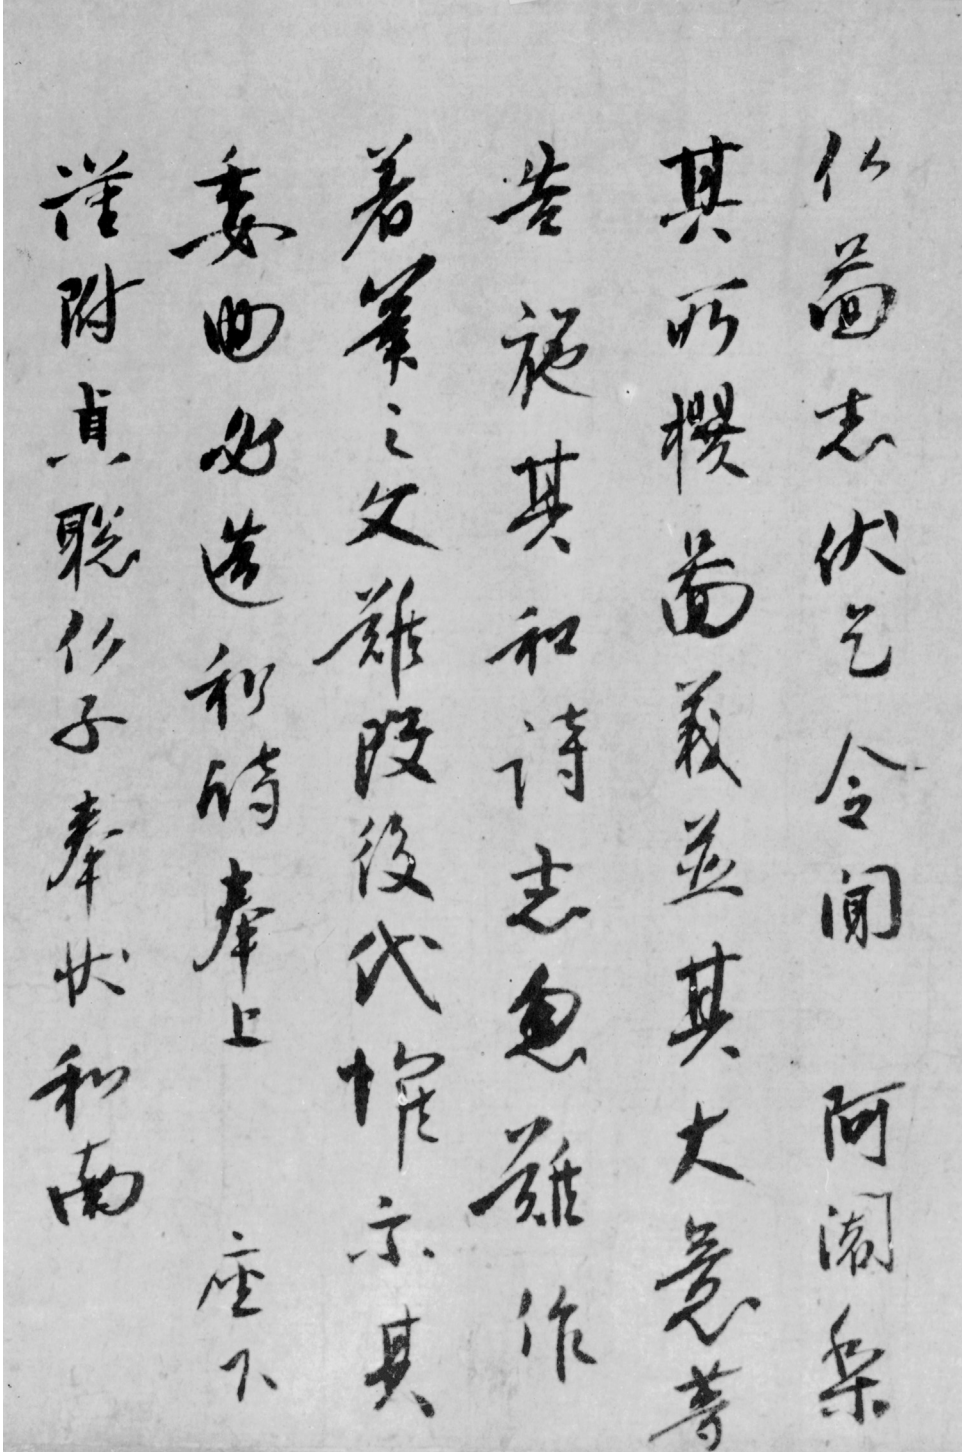 仏圖者伏乞 令聞 阿闍梨
其所撰圖義並其大意等
告施其和詩者忽難作
著筆之文難改後代惟示其
委曲必造和詩奉上 座下
謹附貞聡仏子奉状和南